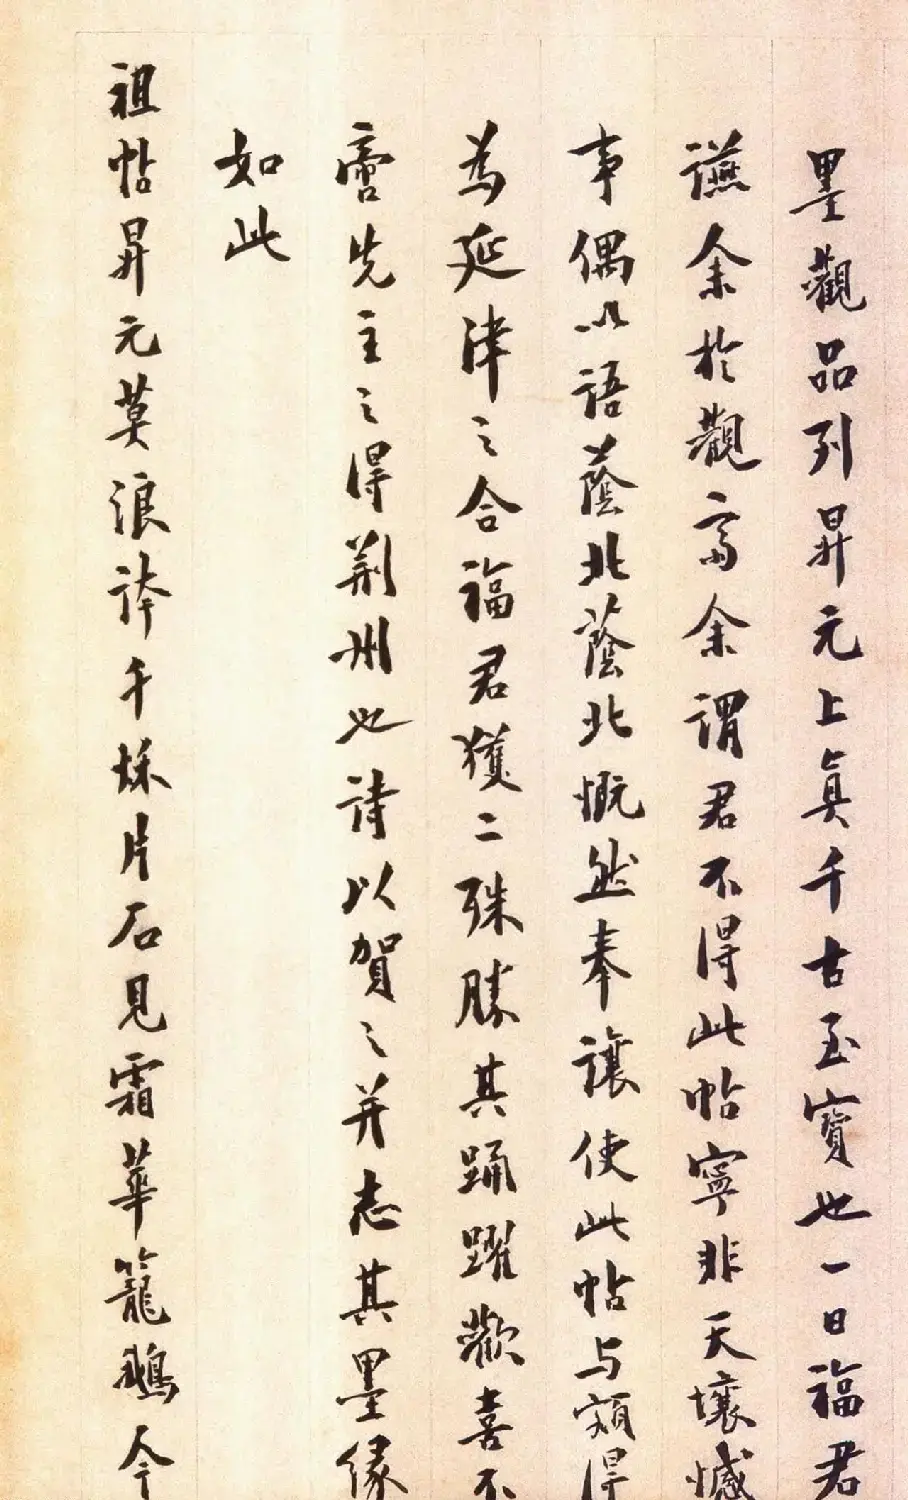 墨觀品列昇元上真千古至寶也一日福君
讌余於觀齋余謂君不得此帖寧非天壤憾
事偶以語蔭北蔭北慨然奉讓使此帖与潁得
為延津之合福君獲二殊勝其踊躍歡喜不
啻先主之得荆州也詩以賀之并志其墨缘
如此
祖帖昇元莫浪誇千秌片石見霜華籠鵝今